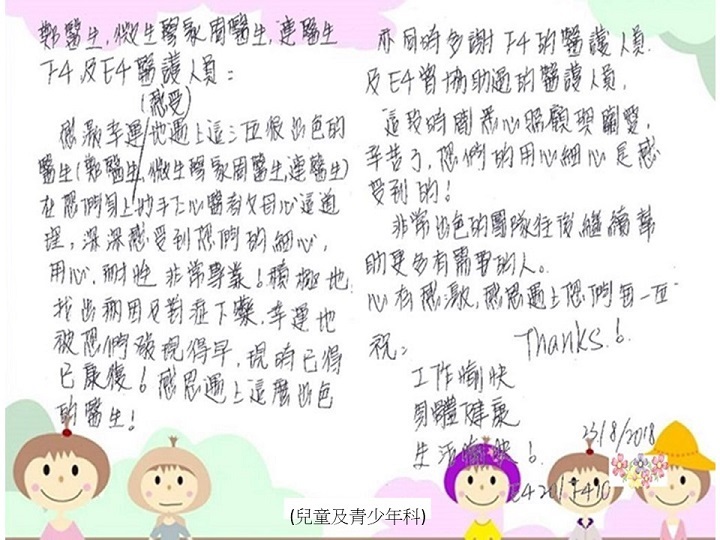 鄭醫生,微生物學家周醫生,連醫生
F4及E4醫護人員:
(感受)
感激幸運地遇上這三位很出色的
醫生(鄭醫生,微生物學家周醫生,連醫生)
在您們身上妙手仁心醫者父母心這道
理,深深感受到您們的細心,
用心,耐性 非常專業!積極地
找出病因及對症下藥,幸運地
被您們發現得早,現時已得
已康復!感恩遇上這麼出色
的醫生!
亦同時多謝F4的醫護人員
及E4曾協助過的醫護人員,
這段時間悉心照顧與關愛,
辛苦了,您們的用心細心是感
受到的!
非常出色的團隊往後繼續幫
助更多有需要的人。
心存感激,感恩遇上您們每一位
祝: Thanks!
工作愉快
身體健康
生活愉快!
23/8/2018
E420/F410
(兒童及青少年科)